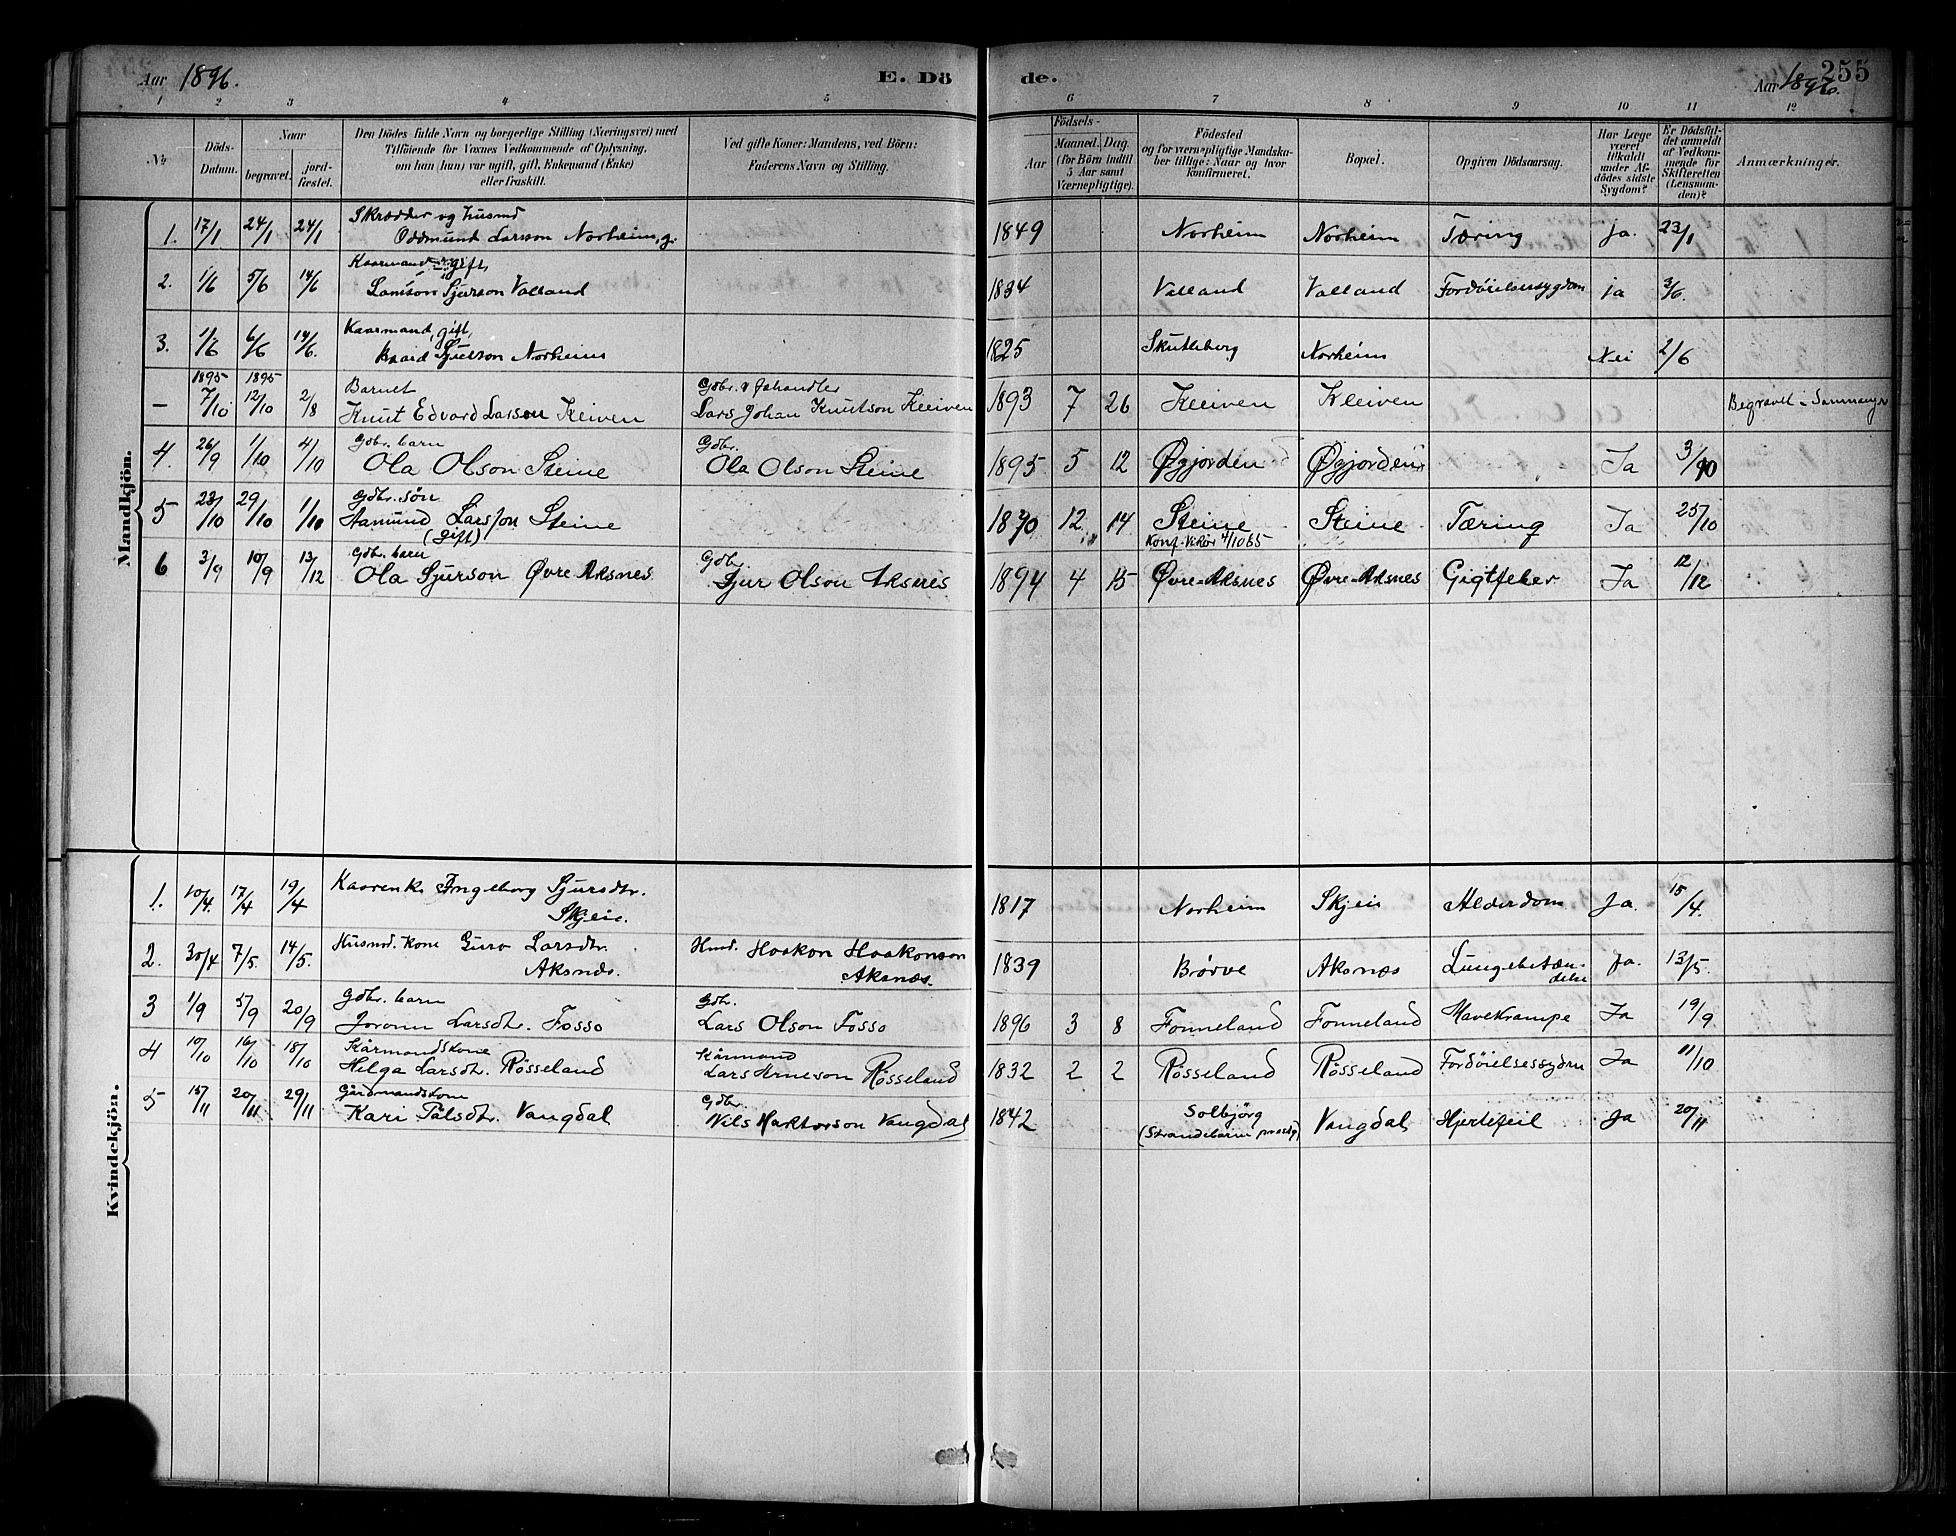 Aar 1896.
E. Dö
de.
Aar 1896.
255
1 2 3 4 5 6 7 8 9 10 11 12
No
Døds-Datum.
Naar
begravet.
jord-fæstet.
Den Dödes fulde Navn og borgerlige Stilling (Næringsvei) med
Tilföiende for Voxnes Vedkommende af Oplysning,
om han (hun) var ugift, gift, Enkemand (Enke)
eller fraskilt.
Ved gifte Koner: Mandens, ved Börn:
Faderens Navn og Stilling.
Födsels-
Aar
Maaned. Dag.
(for Börn indtil
5 Aar samt
Værnepligtige).
Födested
og for værnepligtige Mandska-
ber tillige: Naar og hvor
konfirmeret.
Bopæl.
Opgiven Dödsaarsag.
Har Læge
været
tilkaldt
under Af-
dödes sidste
Sygdom?
Er Dödsfal-
det anmeldt
af Vedkom-
mende for
Skifteretten
(Lensman-
den)?
Anmærkninger.
Mandkjön.
1. 17/1 24/1 24/1 Skrædder og husmd
Oddmund Larsson Norheim, g. 1849 Norheim Norheim Tæring ja. 23/1
2. 1/6 5/6 14/6 Kaarmand, gift,
Samson Sjurson Valland 1834 Valland Valland Fordöielsessygdom ja 3/6.
3. 1/6 6/6 14/6. Kaarmand, gift,
Baard Sjurson Norheim 1825 Skutleberg Norheim Nei 2/6
– 1895 7/10 1895 12/10 2/8 Barnet
Knut Edvard Larsson Kleiven
Gdbr. &
Lars Johan Knutson Kleiven 1893 7 26 Kleiven Kleiven Begravet i Sammanger
4. 26/9 1/10 4/10 Gdbr. barn
Ola Olson Steine
Gdbr.
Ola Olson Steine 1895 5 12 Øgjorden Øgjorden Ja 3/10
5 23/10 29/10 1/10 Gdbr. søn
Aamund Larsson Steine
(gift) 1870 12 14 Steine
Konf. Vikör 4/10 85 Steine Tæring Ja 25/10
6 3/9 10/9 13/12 Gdbr. barn
Ola Sjurson Øvre Aksnes
Gdbr.
Sjur Olson Aksnes 1894 4 15 Øvre-Aksnes Øvre-Aksnes Gigtfeber Ja 12/12
Kvindekjön.
1. 10/4. 17/4 19/4 Kaarenke Ingeborg Sjursdtr.
Skjeie. 1817 Norheim Skjeie Alderdom Ja. 15/4.
2. 30/4 7/5. 14/5. Husmd. kone Guro Larsdtr.
Aksnes.
Hmd. Haakon Haakonson
Aksnæs. 1839 Børve Aksnæs Lungebetæn-
delse Ja. 13/5.
3 1/9 5/9 20/9 Gdbr. barn
Joronn Larsdtr. Fosso
Gdbr.
Lars Olson Fosso 1896 3 8 Fonneland Fonneland Mavekrampe Ja 19/9
4 10/10 16/10 18/10 Kårmandskone
Helga Larsdtr. Røsseland
Kårmand
Lars Arneson Røsseland 1832 2 2 Røsseland Røsseland Fordöielsessygdom Ja 11/10
5 15/11 20/11 29/11 Gårdmandskone
Kari Pålsdtr. Vangdal
Gdbr.
Nils Haktorson Vangdal 1842 Solbjörg
(Strandebarm præstg) Vangdal Hjertefeil Ja 20/11